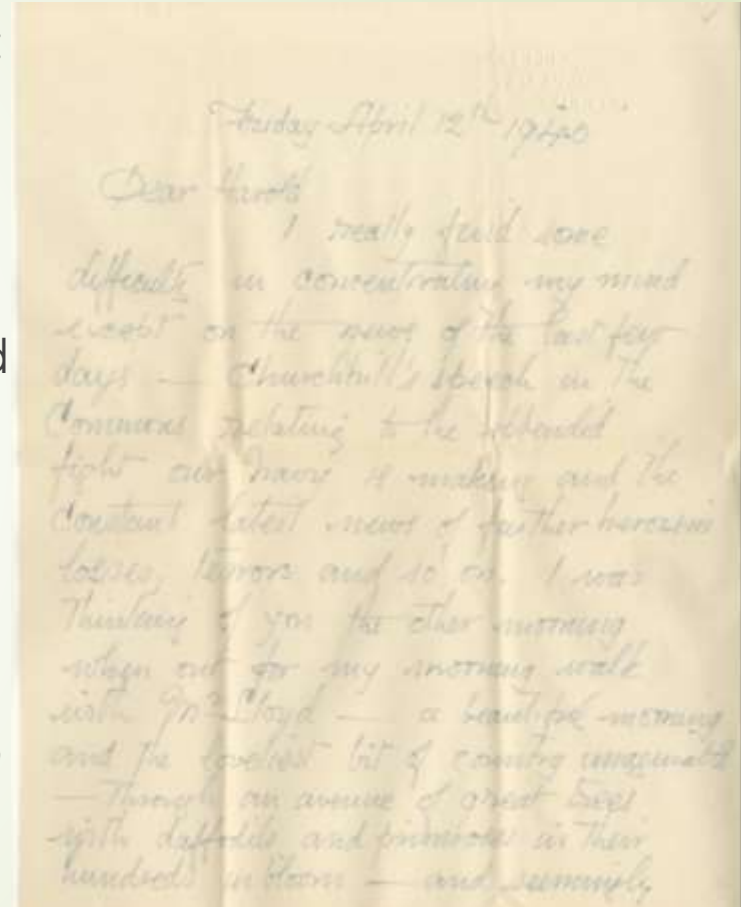 Friday April 12th 1940
Dear Harold
I really find some
difficulty in concentrating my mind
except on the news of the last few
days — Churchill's speech in the
Commons relating to the splendid
fight our navy is making and the
constant latest news of further heroism
losses, terrors and so on. I was
thinking of you the other morning
when out for my morning walk
with Mrs Lloyd — a beautiful morning
and the loveliest bit of country imaginable
— through an avenue of great trees
with daffodils and primroses in their
hundreds in bloom — and seemingly